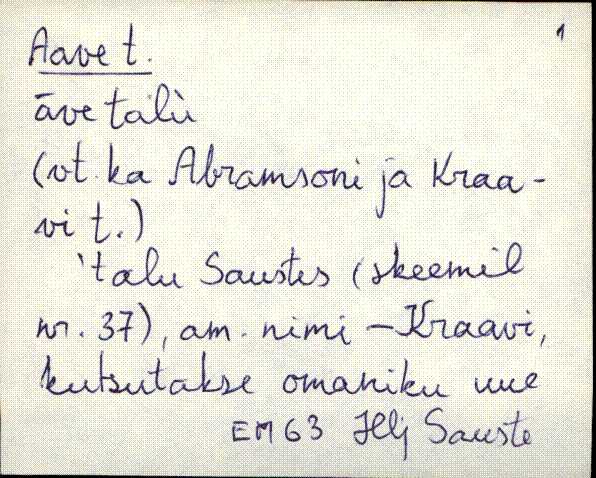 1
Aave t.
āve talù
(vt. ka Abramsoni ja Kraa-
vi t.)
'talu Saustes (skeemil
nr. 37), am. nimi – Kraavi,
kutsutakse omaniku uue
EM 63 Jlj Sauste